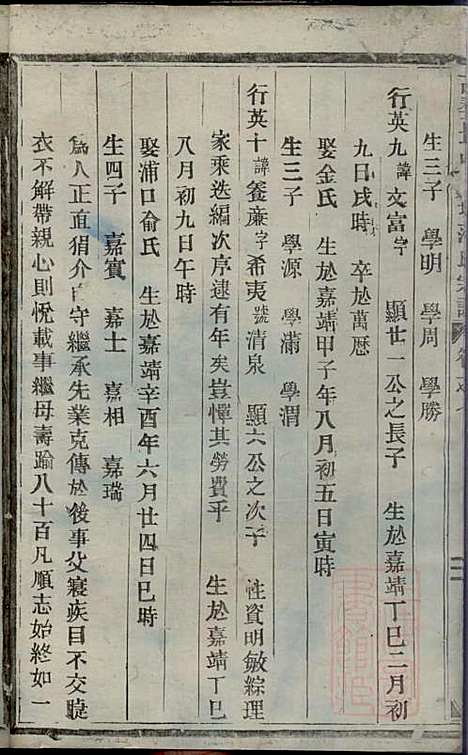 生三子　學明　學周　學勝
行英九 諱文富 字　顯世一公之長子　生於嘉靖丁巳二月初
九日戌時　卒於萬歷
娶金氏　生於嘉靖甲子年八月初五日寅時
生三子　學源　學滿　學渭
行英十 諱養廉 字希夷 號清泉　顯六公之次子　性資明敏綜理
家乘迭編次序逮有年矣豈憚其勞費乎　生於嘉靖丁巳
八月初九日午時
娶浦口俞氏　生於嘉靖辛酉年六月廿四日巳時
生四子　嘉賓　嘉士　嘉相　嘉瑞
為人正直狷介自守繼承先業克傳於後事父寢疾目不交睫
衣不解帶親心則悅載事繼母壽踰八十百凡順志始終如一